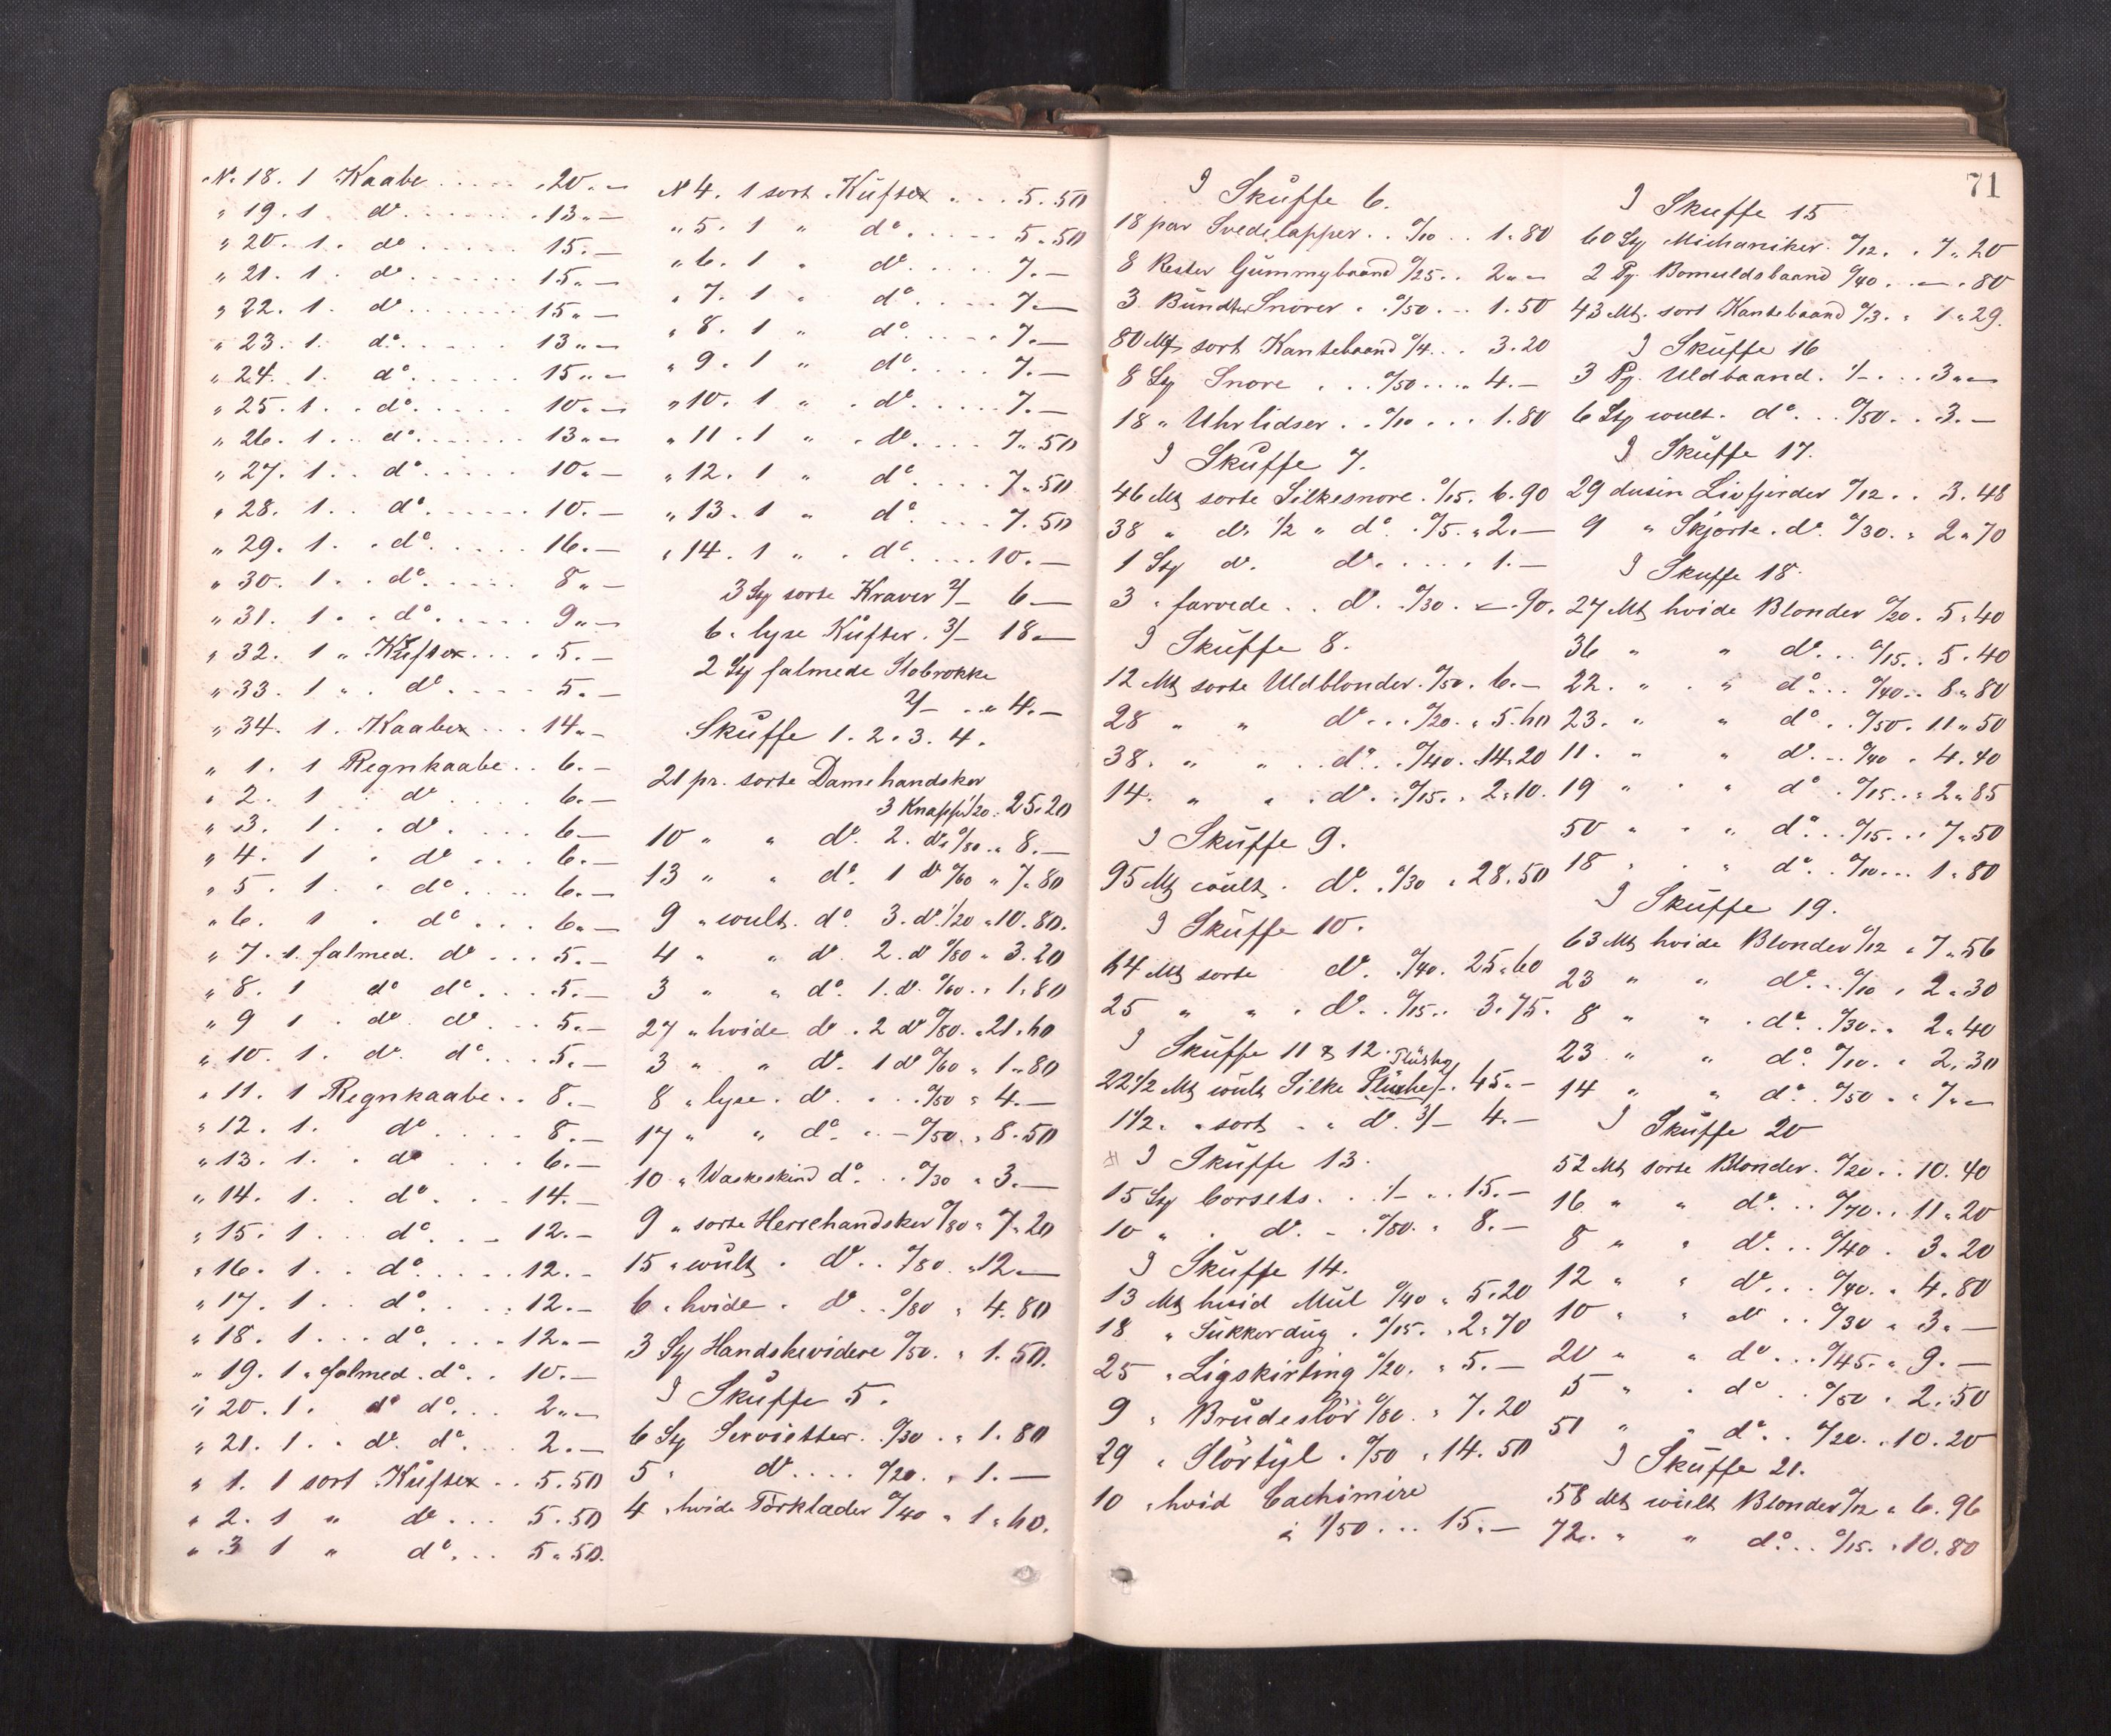 N. 18. 1 Kaabe ..... 20.-
" 19. 1. do ...... 13.-
" 20. 1. do ..... 15.-
" 21. 1. do ..... 15.-
" 22. 1. do ..... 15.-
" 23. 1. do ..... 13.-
" 24. 1. do ...... 15.-
" 25. 1. do ..... 10.-
" 26. 1. do ...... 13.-
" 27. 1. do ..... 10.-
" 28. 1. do ...... 10.-
" 29. 1. do ..... 16.-
" 30. 1. do ..... 8.-
" 31. 1. do ..... 9.-
" 32. 1 " Küfter .... 5.-
" 33. 1 " do .... 5.-
" 34. 1. Kaaber ... 14.-
" 1. 1 Regnkaabe .. 6.-
" 2. 1 do .... 6.-
" 3. 1. do .... 6.-
" 4. 1 " do ... 6.-
" 5. 1. " do .... 6.-
" 6. 1 " do ... 6.-
" 7. 1. falmed. do ... 5.-
" 8. 1 do do ... 5.-
" 9 1. do do ... 5.-
" 10. 1. do do ... 5.-
" 11. 1 Regnkaabe .. 8.-
" 12. 1. do .... 8.-
" 13. 1. " do ... 6.-
" 14. 1. do ... 14.-
" 15. 1. do .. 12.-
" 16. 1. do .... 12.-
" 17. 1. do ... 12.-
" 18. 1. do ... 12.-
" 19. 1. falmed. do .. 10.-
" 20. 1. do do ... 2.-
" 21. 1. " do do ... 2.-
" 1. 1 sort Küfter .. 5.50
" 2. 1 " do ... 5.50
" 3 1 " do ... 5.50.
N 4. 1 sort. Küfter ... 5.50
" 5. 1 " do ..... 5.50
" 6. 1 " do .... 7.-
" 7. 1 " do .... 7.-
" 8. 1 " do ..... 7.-
" 9. 1 " do .... 7.-
" 10. 1 " do ..... 7.-
" 11. 1 " do .... 7.50
" 12. 1 " do .... 7.50
" 13. 1 " do .... 7.50
" 14. 1 " do .... 10.-
3 Stg sorte Kraver 2/- 6.-
6 " lyse Küfter. 3/- 18.-
2 Stg falmede Slobrokke
2/- .. 4.-
Skuffe 1. 2. 3. 4.
21 pr. sorte Damehandsker
3 Knapp. 1/20. 25.20
10 " " do 2. do 0/80 " 8.-
13 " " do 1 do 0/60 " 7.80
9 " coult. do 3. do 1/20 " 10.80.
4 " " do 2. do 0/80 " 3.20
3 " " do 1. do 0/60 " 1.80
27 " hvide do . 2 do 0/80. " 21.60
3 " " do 1 do 0/60 " 1.80
8 " lyse. do ... 0/50 " 4.-
17 " " do .. 0/50. " 8.50
10 " Waskeskind do ... 0/30 " 3.-
9 " sorte Herrehandsker 0/80 " 7.20
15 " coult. do .. 0/80. " 12.-
6 " hvide. do .. 0/80 " 4.80
3 Stg Handskevidere 0/50. " 1.50.
I Skuffe 5.
6 Stg Servietter. 0/30. " 1.80
5 " do .... 0/20. " 1.-
4 " hvide Törklæder 0/40 " 1.60.
71
I Skuffe 6.
18 par Svedelapper .. 0/10 .. 1.80
8 Rester Gummybaand 0/25 .. 2.-
3 Bundter Snorer " 0/50 ... 1.50
80 Mt sort Kantebaand 0/4 ... 3.20
8 Stg Snore ... 0/50 ... 4.-
18 " Uhrlidser .. 0/10 ... 1.80
I Skuffe 7.
46 Mt sorte Silkesnore. 0/15. 6.90
38 " do 1/2 " do . 0/5. " 2.-
1 Stg do do ..... 1.-
3 " farvede .. do . 0/30. - 90.
I Skuffe 8.
12 Mt sorte Uldblonder. 0/50. 6.-
28 " " do ... 0/20. " 5.60
38. " " do . 0/40. 14.20
14. " " do . 0/15. " 2.10.
I Skuffe 9.
95 Mt coult. do . 0/30 " 28.50
I Skuffe 10.
64 Mt sorte do . 0/40. 25.60
25 " " " do . 0/15. 3.75.
I Skuffe 11 & 12. Plüshg
22 1/2 Mt coult Silke Plüshe 2/-. 45.-
1 1/2. " sort " do 3/- 4.-
I Skuffe 13.
15 Stg Corsets ... 1/- .. 15.-
10 " " do .. 0/80. " 8.-
I Skuffe 14.
13 Mt hvid Mul 0/40 " 5.20
18 " Sukkerdug . 0/15. " 2.70
25 " Ligskirting 0/20. " 5.-
9 " Brudeslör 0/80 " 7.20
29 " Slörtyl . 0/50 " 14.50
10 " hvid Cachimire
á 1/50 ... 15.-
I Skuffe 15
60 Stg Michaniker. 0/12. " 7.20
2 Pg. Bomuldsbaand 0/40 ... - 80
43 Mt. sort Kantebaand 0/3. " 1.29.
I Skuffe 16
3 Pg. Uldbaand. 1/- ... 3.-
6 Stg coult. do ... 0/50 .. 3.-
I Skuffe 17.
29 dusin Livfjerder 0/12 .. 3.48
9 " Skjorte. do 0/30. " 2.70
I Skuffe 18.
27 Mt hvide Blonder 0/20. 5.40
36 " " do ... 0/15. 5.40
22. " " do ... 0/40 .. 8.80
23. " " do ... 0/50. 11.50
11. " " do ... 0/40 " 4.40
19 " " do . 0/15. " 2.85
50 " " do ... 0/15. " 7.50
18 " " do .. 0/10 ... 1.80
I Skuffe 19.
63 Mt hvide Blonder 0/12 " 7.56
23 " " do ... 0/10 " 2.30
8 " " do .. 0/30. " 2.40
23 " " do . 0/10. " 2.30
14 " " do . 0/50 " 7.-
I Skuffe 20
52 Mt sorte Blonder. 0/20 .. 10.40
16 " " do ... 0/70. 11.20
8 " " do ... 0/40. 3.20
12 " " do ... 0/40. " 4.80
10 " " do .. 0/30 " 3.-
20 " " do ... 0/45. " 9.-
5 " " do .. 0/50 " 2.50
51 " " do . 0/20. " 10.20
I Skuffe 21.
58 Mt coult Blonder 0/12 " 6.96
72. " " do .. 0/15. " 10.80